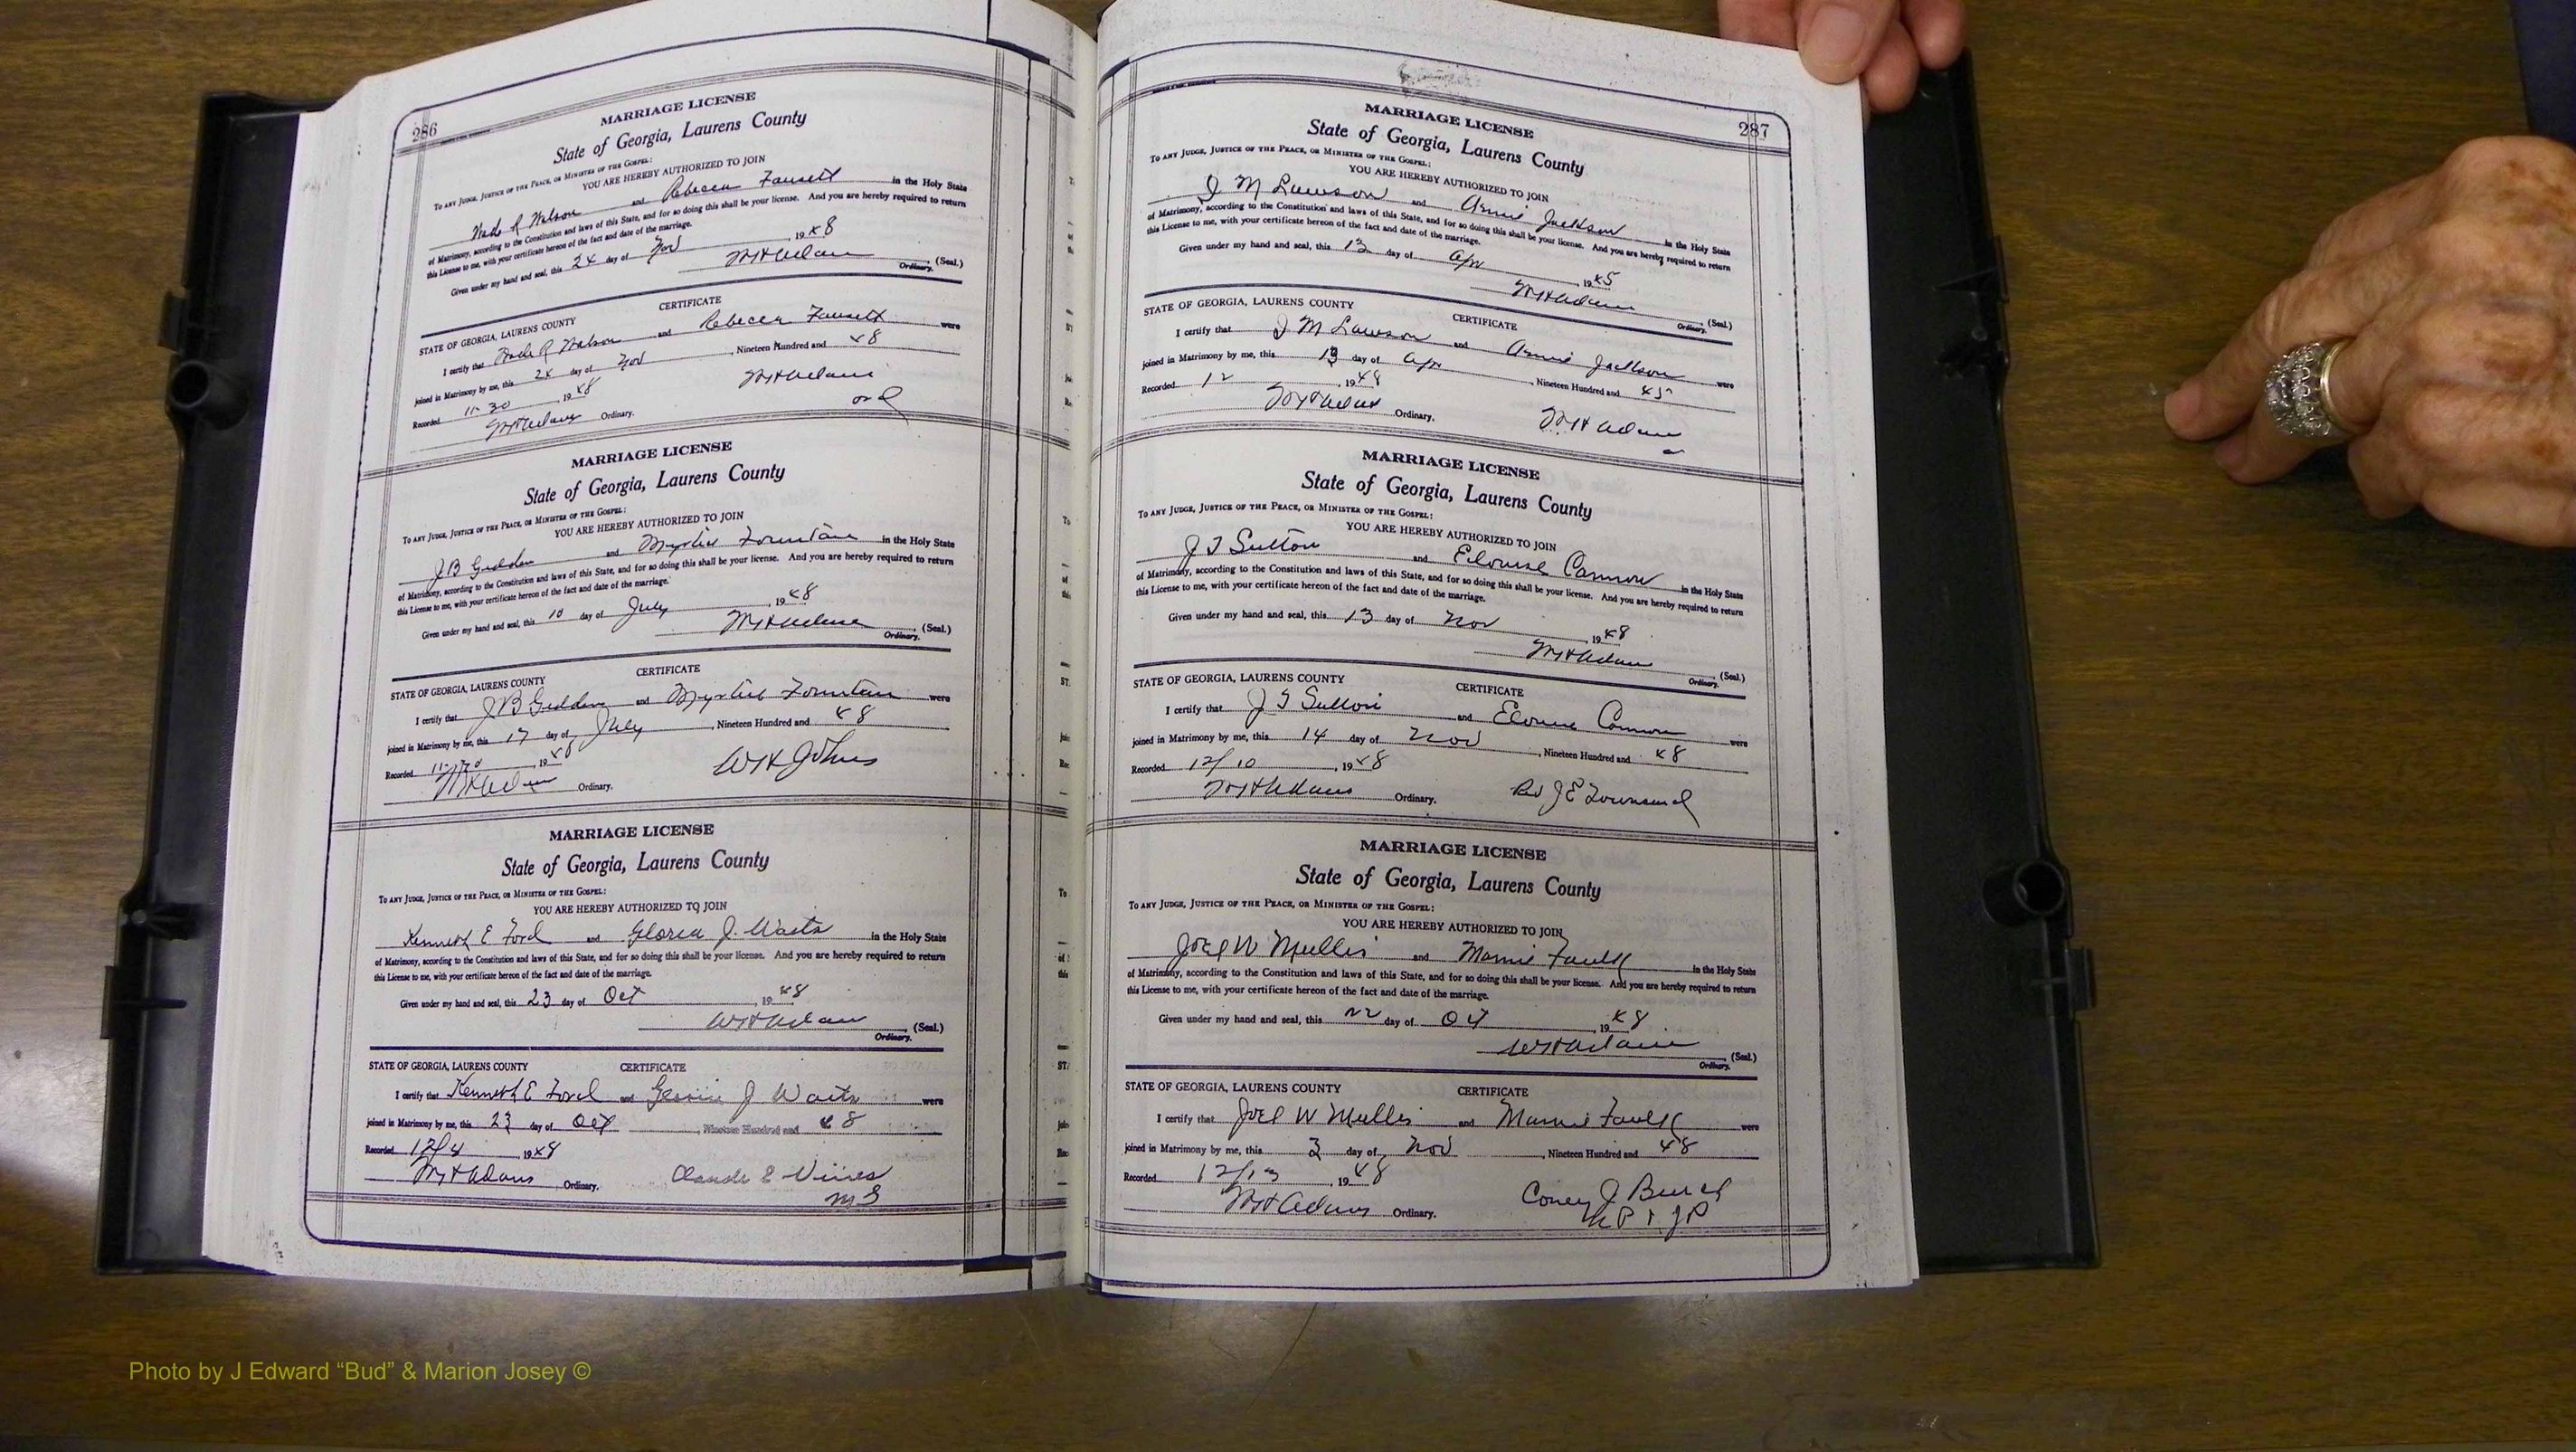 286
MARRIAGE LICENSE
State of Georgia, Laurens County
To any Judge, Justice of the Peace, or Minister of the Gospel:
YOU ARE HEREBY AUTHORIZED TO JOIN
Wade R Watson and Rebecca Faucett in the Holy State
of Matrimony, according to the Constitution and laws of this State, and for so doing this shall be your license. And you are hereby required to return
this License to me, with your certificate hereon of the fact and date of the marriage.
Given under my hand and seal, this 24 day of Nov, 1948
WH Adams (Seal.)
Ordinary.
CERTIFICATE
STATE OF GEORGIA, LAURENS COUNTY
I certify that Wade R Watson and Rebecca Faucett were
joined in Matrimony by me, this 24 day of Nov, Nineteen Hundred and 48
Recorded 11-30, 1948 WH Adams
WH Adams Ordinary. ord
MARRIAGE LICENSE
State of Georgia, Laurens County
To any Judge, Justice of the Peace, or Minister of the Gospel:
YOU ARE HEREBY AUTHORIZED TO JOIN
J B and Myrtice Fountain in the Holy State
of Matrimony, according to the Constitution and laws of this State, and for so doing this shall be your license. And you are hereby required to return
this License to me, with your certificate hereon of the fact and date of the marriage.
Given under my hand and seal, this 10 day of July, 1948
WH Adams (Seal.)
Ordinary.
CERTIFICATE
STATE OF GEORGIA, LAURENS COUNTY
I certify that J B and Myrtice Fountain were
joined in Matrimony by me, this 17 day of July, Nineteen Hundred and 48
Recorded 1948 WH Johns
WH Adams Ordinary.
MARRIAGE LICENSE
State of Georgia, Laurens County
To any Judge, Justice of the Peace, or Minister of the Gospel:
YOU ARE HEREBY AUTHORIZED TO JOIN
Kenneth E Ford and Gloria J. Waits in the Holy State
of Matrimony, according to the Constitution and laws of this State, and for so doing this shall be your license. And you are hereby required to return
this License to me, with your certificate hereon of the fact and date of the marriage.
Given under my hand and seal, this 23 day of Oct, 1948
WH Adams (Seal.)
Ordinary.
STATE OF GEORGIA, LAURENS COUNTY CERTIFICATE
I certify that Kenneth E Ford and Gloria J Waits were
joined in Matrimony by me, this 23 day of Oct, Nineteen Hundred and 48
Recorded 12/4, 1948
WH Adams Ordinary. Claude E Vines
MG
287
MARRIAGE LICENSE
State of Georgia, Laurens County
To any Judge, Justice of the Peace, or Minister of the Gospel:
YOU ARE HEREBY AUTHORIZED TO JOIN
J M Lawson and Annie Jackson in the Holy State
of Matrimony, according to the Constitution and laws of this State, and for so doing this shall be your license. And you are hereby required to return
this License to me, with your certificate hereon of the fact and date of the marriage.
Given under my hand and seal, this 13 day of Apr, 1945
WH Adams (Seal.)
Ordinary.
STATE OF GEORGIA, LAURENS COUNTY CERTIFICATE
I certify that J M Lawson and Annie Jackson were
joined in Matrimony by me, this 13 day of Apr, Nineteen Hundred and 45
Recorded 12, 1948
WH Adams Ordinary. WH Adams
MARRIAGE LICENSE
State of Georgia, Laurens County
To any Judge, Justice of the Peace, or Minister of the Gospel:
YOU ARE HEREBY AUTHORIZED TO JOIN
J T Sutton and Elouise Cannon in the Holy State
of Matrimony, according to the Constitution and laws of this State, and for so doing this shall be your license. And you are hereby required to return
this License to me, with your certificate hereon of the fact and date of the marriage.
Given under my hand and seal, this 13 day of Nov, 1948
WH Adams (Seal.)
Ordinary.
STATE OF GEORGIA, LAURENS COUNTY CERTIFICATE
I certify that J T Sutton and Elouise Cannon were
joined in Matrimony by me, this 14 day of Nov, Nineteen Hundred and 48
Recorded 12/10, 1948
WH Adams Ordinary. Rev J E Townsend
MARRIAGE LICENSE
State of Georgia, Laurens County
To any Judge, Justice of the Peace, or Minister of the Gospel:
YOU ARE HEREBY AUTHORIZED TO JOIN
Joel W Mullis and Mamie Faulk in the Holy State
of Matrimony, according to the Constitution and laws of this State, and for so doing this shall be your license. And you are hereby required to return
this License to me, with your certificate hereon of the fact and date of the marriage.
Given under my hand and seal, this 22 day of Oct, 1948
WH Adams (Seal.)
Ordinary.
STATE OF GEORGIA, LAURENS COUNTY CERTIFICATE
I certify that Joel W Mullis and Mamie Faulk were
joined in Matrimony by me, this 3 day of Nov, Nineteen Hundred and 48
Recorded 12/13, 1948
WH Adams Ordinary. Coney J Burch
JP
Photo by J Edward “Bud” & Marion Josey ©